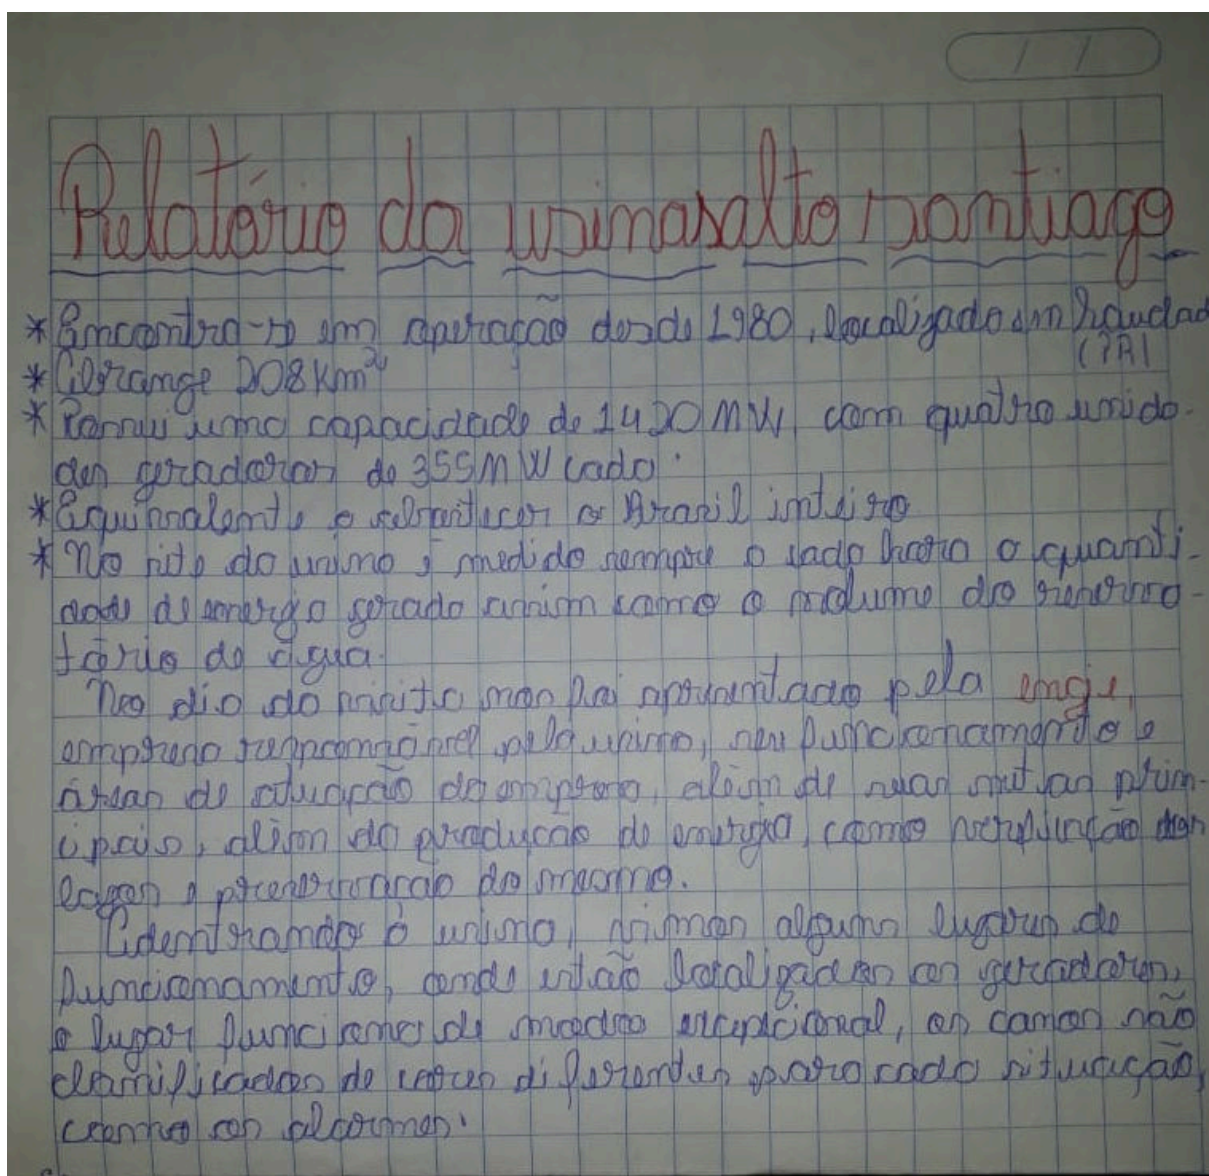 Relatório da usina salto santiago
* Encontra-se em operação desde 1980, localizado em Saudad
(PR)
* Abrange 208 Km²
* Possui uma capacidade de 1420 MW, com quatro unida-
des geradoras de 355 MW cada.
* Equivalente a abastecer o Brasil inteiro
* No site da usina é medido sempre a cada hora a quanti-
dade de energia gerada assim como o volume do reserva-
tório de água.
No dia da visita nos foi apresentado pela engie,
empresa responsável pela usina, seu funcionamento e
áreas de atuação da empresa, além de suas metas prin-
cipais, além da produção de energia, como das
lagos e preservação do mesmo.
Adentramos a usina, vimos alguns lugares de
funcionamento, onde estão localizados os geradores,
o lugar funciona de modo excepcional, os canos são
classificados de cores diferentes para cada situação,
como os alarmes.